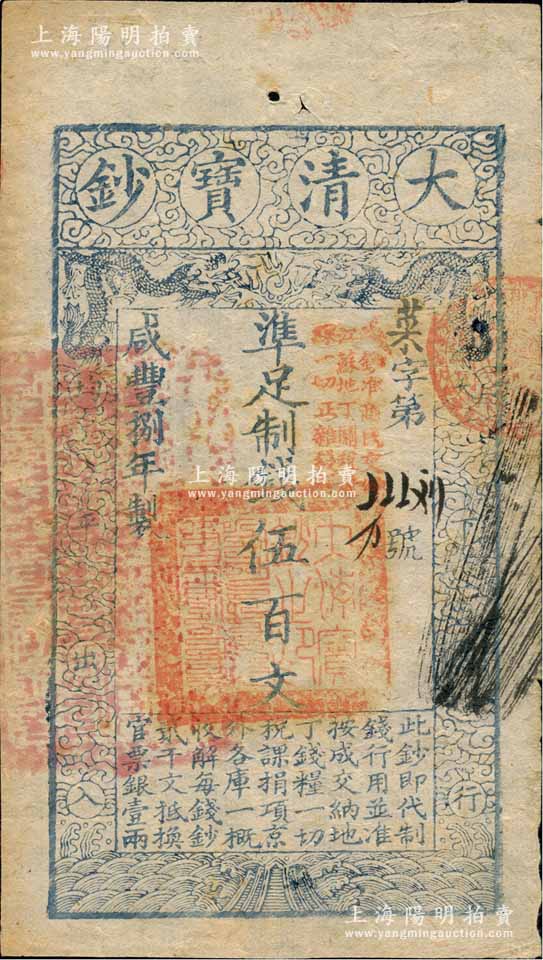 上海陽明拍賣
www.yangmingauction.com
大清寶鈔
菜字第
號
準足制錢伍百文
咸豐捌年製
此鈔即代制
錢行用並准
按成交納地
丁錢糧一切
稅課捐項京
外各庫一概
收解每錢鈔
貳千文抵換
官票銀壹兩
下
行
平
出
入
上海陽明拍賣
www.yangmingauction.com
上海陽明拍賣
www.yangmingauction.com